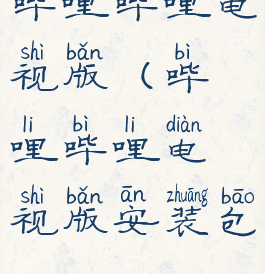 哔哩哔哩电
shì bǎn bì
视版(哔
lī bì lī diàn
哩哔哩电
shì bǎn ān zhuāng bāo
视版安装包